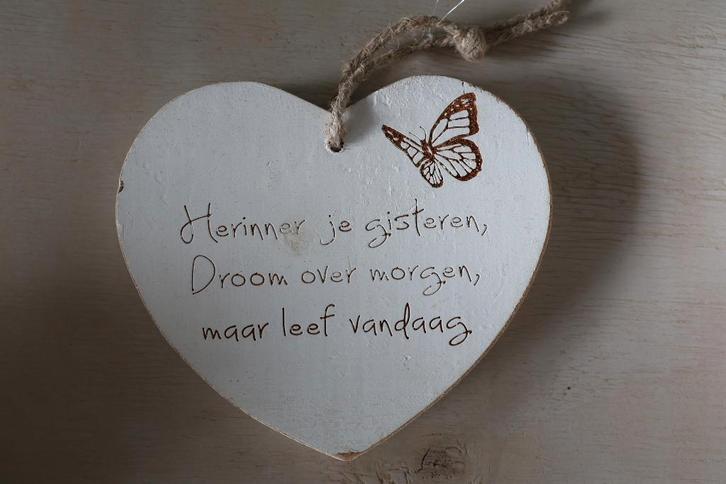 Herinner je gisteren,
Droom over morgen,
maar leef vandaag.